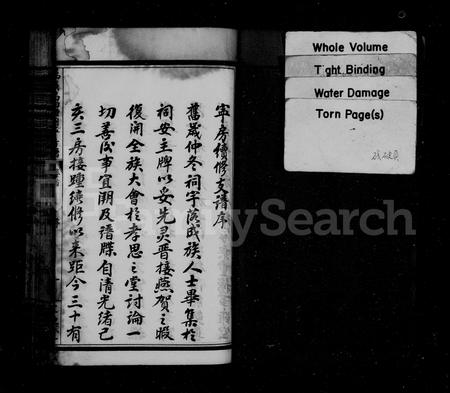 寧房續修支譜序
舊歲仲冬祠宇落成族人士畢集於
祠安主牌以妥先灵晋接燕賀之暇
復開全族大會於孝思之堂討論一
切善後事宜溯及譜牒自清光緒己
亥三房接踵續修以来距今三十有
Whole Volume
Tight Binding
Water Damage
Torn Page(s)
FamilySearch